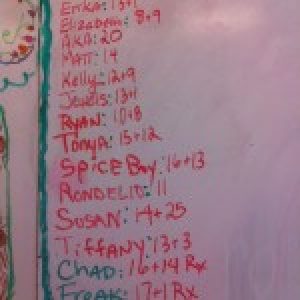 Erika: 13+1
Elizabeth: 8+9
AKA: 20
MATT: 14
Kelly: 12+9
Jewels: 13+1
RYAN: 17+8
Tonya: 15+12
Spice Boy: 16+13
RONDELIO: 11
SUSAN: 14+25
TIFFANY: 13+3
CHAD: 16+14 Rx
FREAK: 17+1 Rx